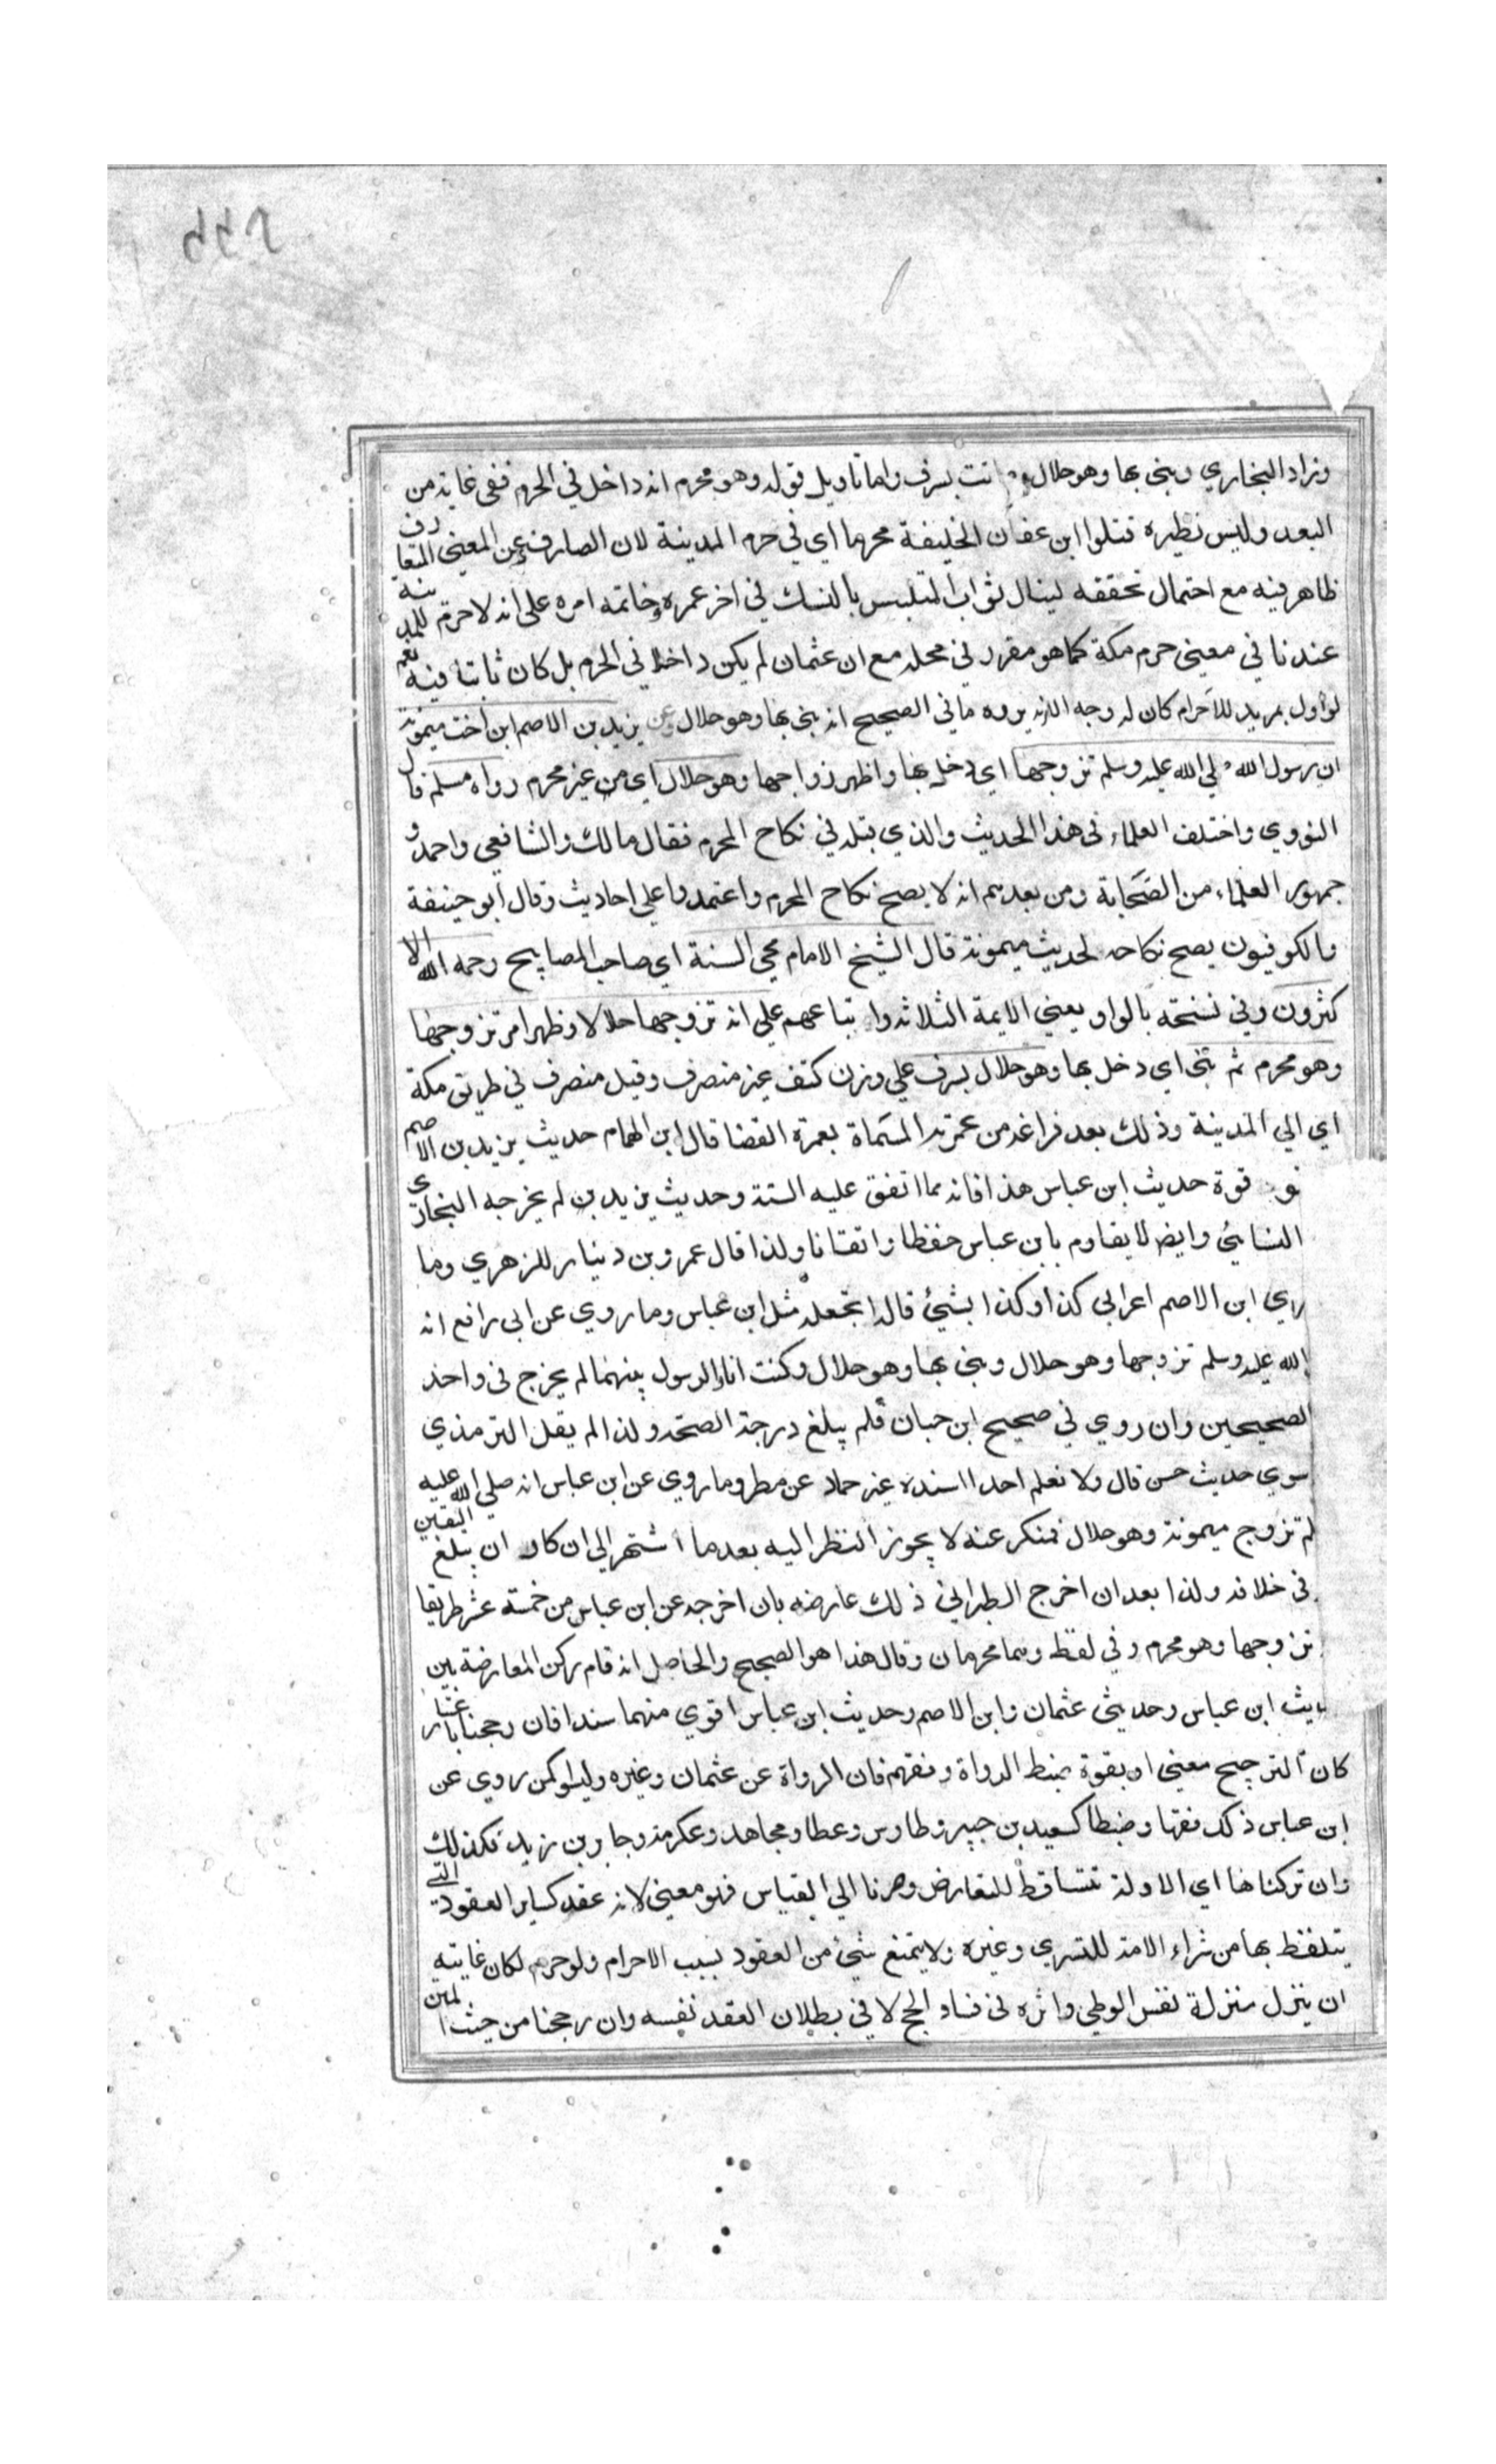 وزاد البخاري وبنى بها وهو حلال وماتت بسرف واما تاويل قوله وهو محرم انه داخل في الحرم ففي غاية من
البعد وليس نظيره قتلوا ابن عفان الخليفة محرما اي في حرم المدينة لان الصارف عن المعنى المتعارف
ظاهر فيه مع احتمال تحققه لينال ثواب المتلبس بالنسك في اخر عمره وخاتمة امره على انه لا حرم للمدينة
عندنا في معنى حرم مكة كما هو مقرر في محله مع ان عثمان لم يكن داخلا في الحرم بل كان ثابتا فيه نعم
لو اول بمريد للاحرام كان له وجه الا انه يروه ما في الصحيح انه بنى بها وهو حلال وعن يزيد بن الاصم ابن اخت ميمونة
ان رسول الله صلي الله عليه وسلم تزوجها اي دخل بها واظهر زواجها وهو حلال اي من غير محرم رواه مسلم قال
النووي واختلف العلماء في هذا الحديث والذي قبله في نكاح المحرم فقال مالك والشافعي واحمد و
جمهور العلماء من الصحابة ومن بعدهم انه لا يصح نكاح المحرم واعتمدوا على احاديث وقال ابو حنيفة
والكوفيون يصح نكاحه لحديث ميمونة قال الشيخ الامام محي السنة اي صاحب المصابيح رحمه الله الا
كثرون وفي نسخة بالواو يعني الايمة الثلاثة واتباعهم على انه تزوجها حلالا وظهر امر تزوجها
وهو محرم ثم بنى اي دخل بها وهو حلال بسرف على وزن كتف غير منصرف وقيل منصرف في طريق مكة
اي الي المدينة وذلك بعد فراغه من عمرته المسماة بعمرة القضا قال ابن الهمام حديث يزيد بن الاصم
قوة حديث ابن عباس هذا فانه مما اتفق عليه الستة وحديث يزيد بن لم يخرجه البخاري
النسائي وايضا لا يقاوم بابن عباس حفظا واتقانا ولذا قال عمرو بن دينار للزهري وما
ري ابن الاصم اعرابي كذا وكذا بشيئ قاله اتجعله مثل ابن عباس وما روي عن ابي رافع انه
الله عليه وسلم تزوجها وهو حلال وبنى بها وهو حلال وكنت انا الرسول بينهما لم يخرج في واحد
الصحيحين وان روي في صحيح ابن حبان فلم يبلغ درجة الصحة ولذا لم يقل الترمذي
سوي حديث حسن قال ولا نعلم احدا اسنده غير حماد عن مطر وما روي عن ابن عباس انه صلي الله عليه
لم تزوج ميمونة وهو حلال فمنكر عنه لا يجوز النظر اليه بعدما اشتهر الي ان كاد ان يبلغ اليقين
في خلافه ولذا بعد ان اخرج الطبراني ذلك عارضه بان اخرجه عن ابن عباس من خمسة عشر طريقا
تزوجها وهو محرم وفي لفظ وهما محرمان وقال هذا هو الصحيح والحاصل انه قام ركن المعارضة بين
يث ابن عباس وحديثى عثمان وابن الاصم وحديث ابن عباس اقوي منهما سندا فان رجحنا باعتبار
كان الترجيح معنى او بقوة ضبط الرواة وفقهم فان الرواة عن عثمان وغيره وليسوا كمن روي عن
ابن عباس ذلك فقها وضبطا كسعيد بن جبير وطاوس وعطا ومجاهد وعكرمة وجابر بن زيد فكذلك
وان تركناها اي الاولة تتساقط للتعارض وصرنا الي القياس فهو معنى لانه عقد كساير العقود التي
يتلفظ بها من شراء الامة للتسري وغيره ولا يمتنع شيئ من العقود بسبب الاحرام ولو حرم لكان غايته
ان ينزل منزلة نفس الوطي واثره في فساد الحج لا في بطلان العقد نفسه وان رجحنا من حيث المتن